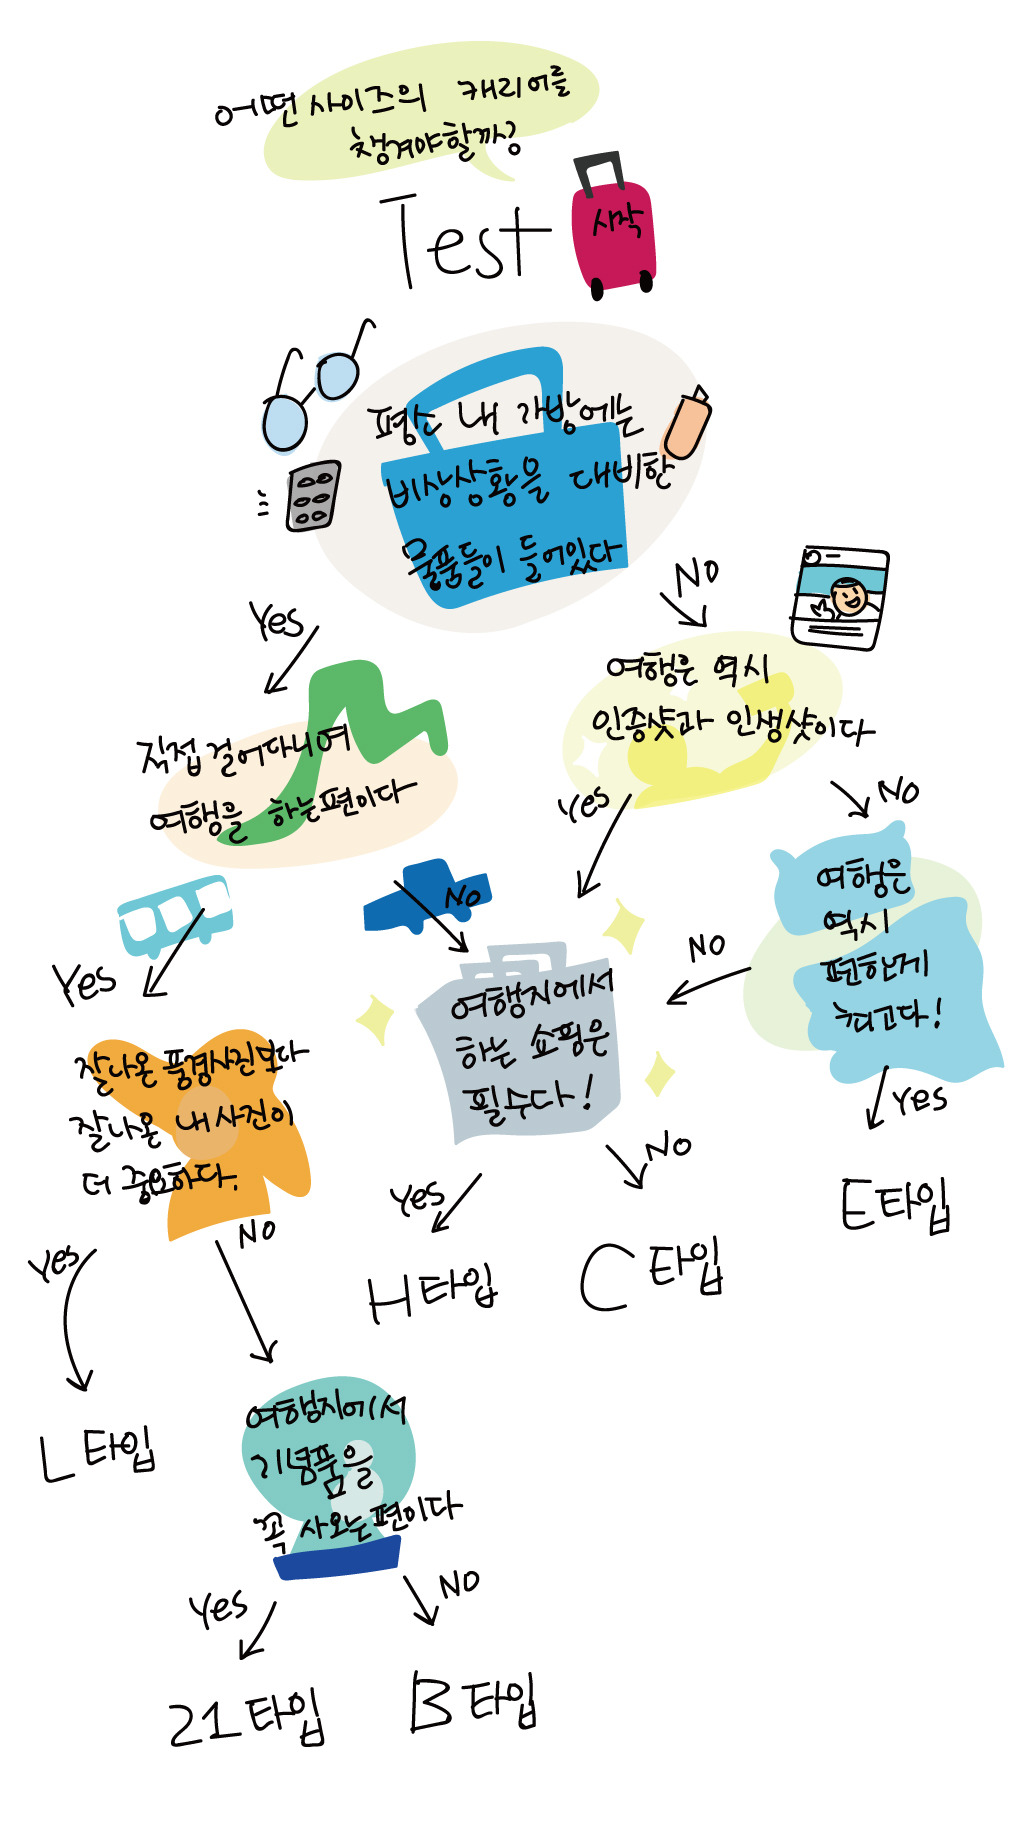 어떤 사이즈의 캐리어를
챙겨야할까?
Test
시작
평소 내 가방에는
비상상황을 대비한
물품들이 들어있다
Yes
No
직접 걸어다니며
여행을 하는편이다
여행은 역시
인증샷과 인생샷이다
Yes
No
Yes
No
여행은
역시
편하게
쉬고다!
No
Yes
여행지에서
하는 쇼핑은
필수다!
잘나온 풍경사진보다
잘나온 내 사진이
더 중요하다.
Yes
No
Yes
No
E타입
H타입
C타입
L타입
여행지에서
기념품을
꼭 사오는편이다
Yes
No
21타입
B타입